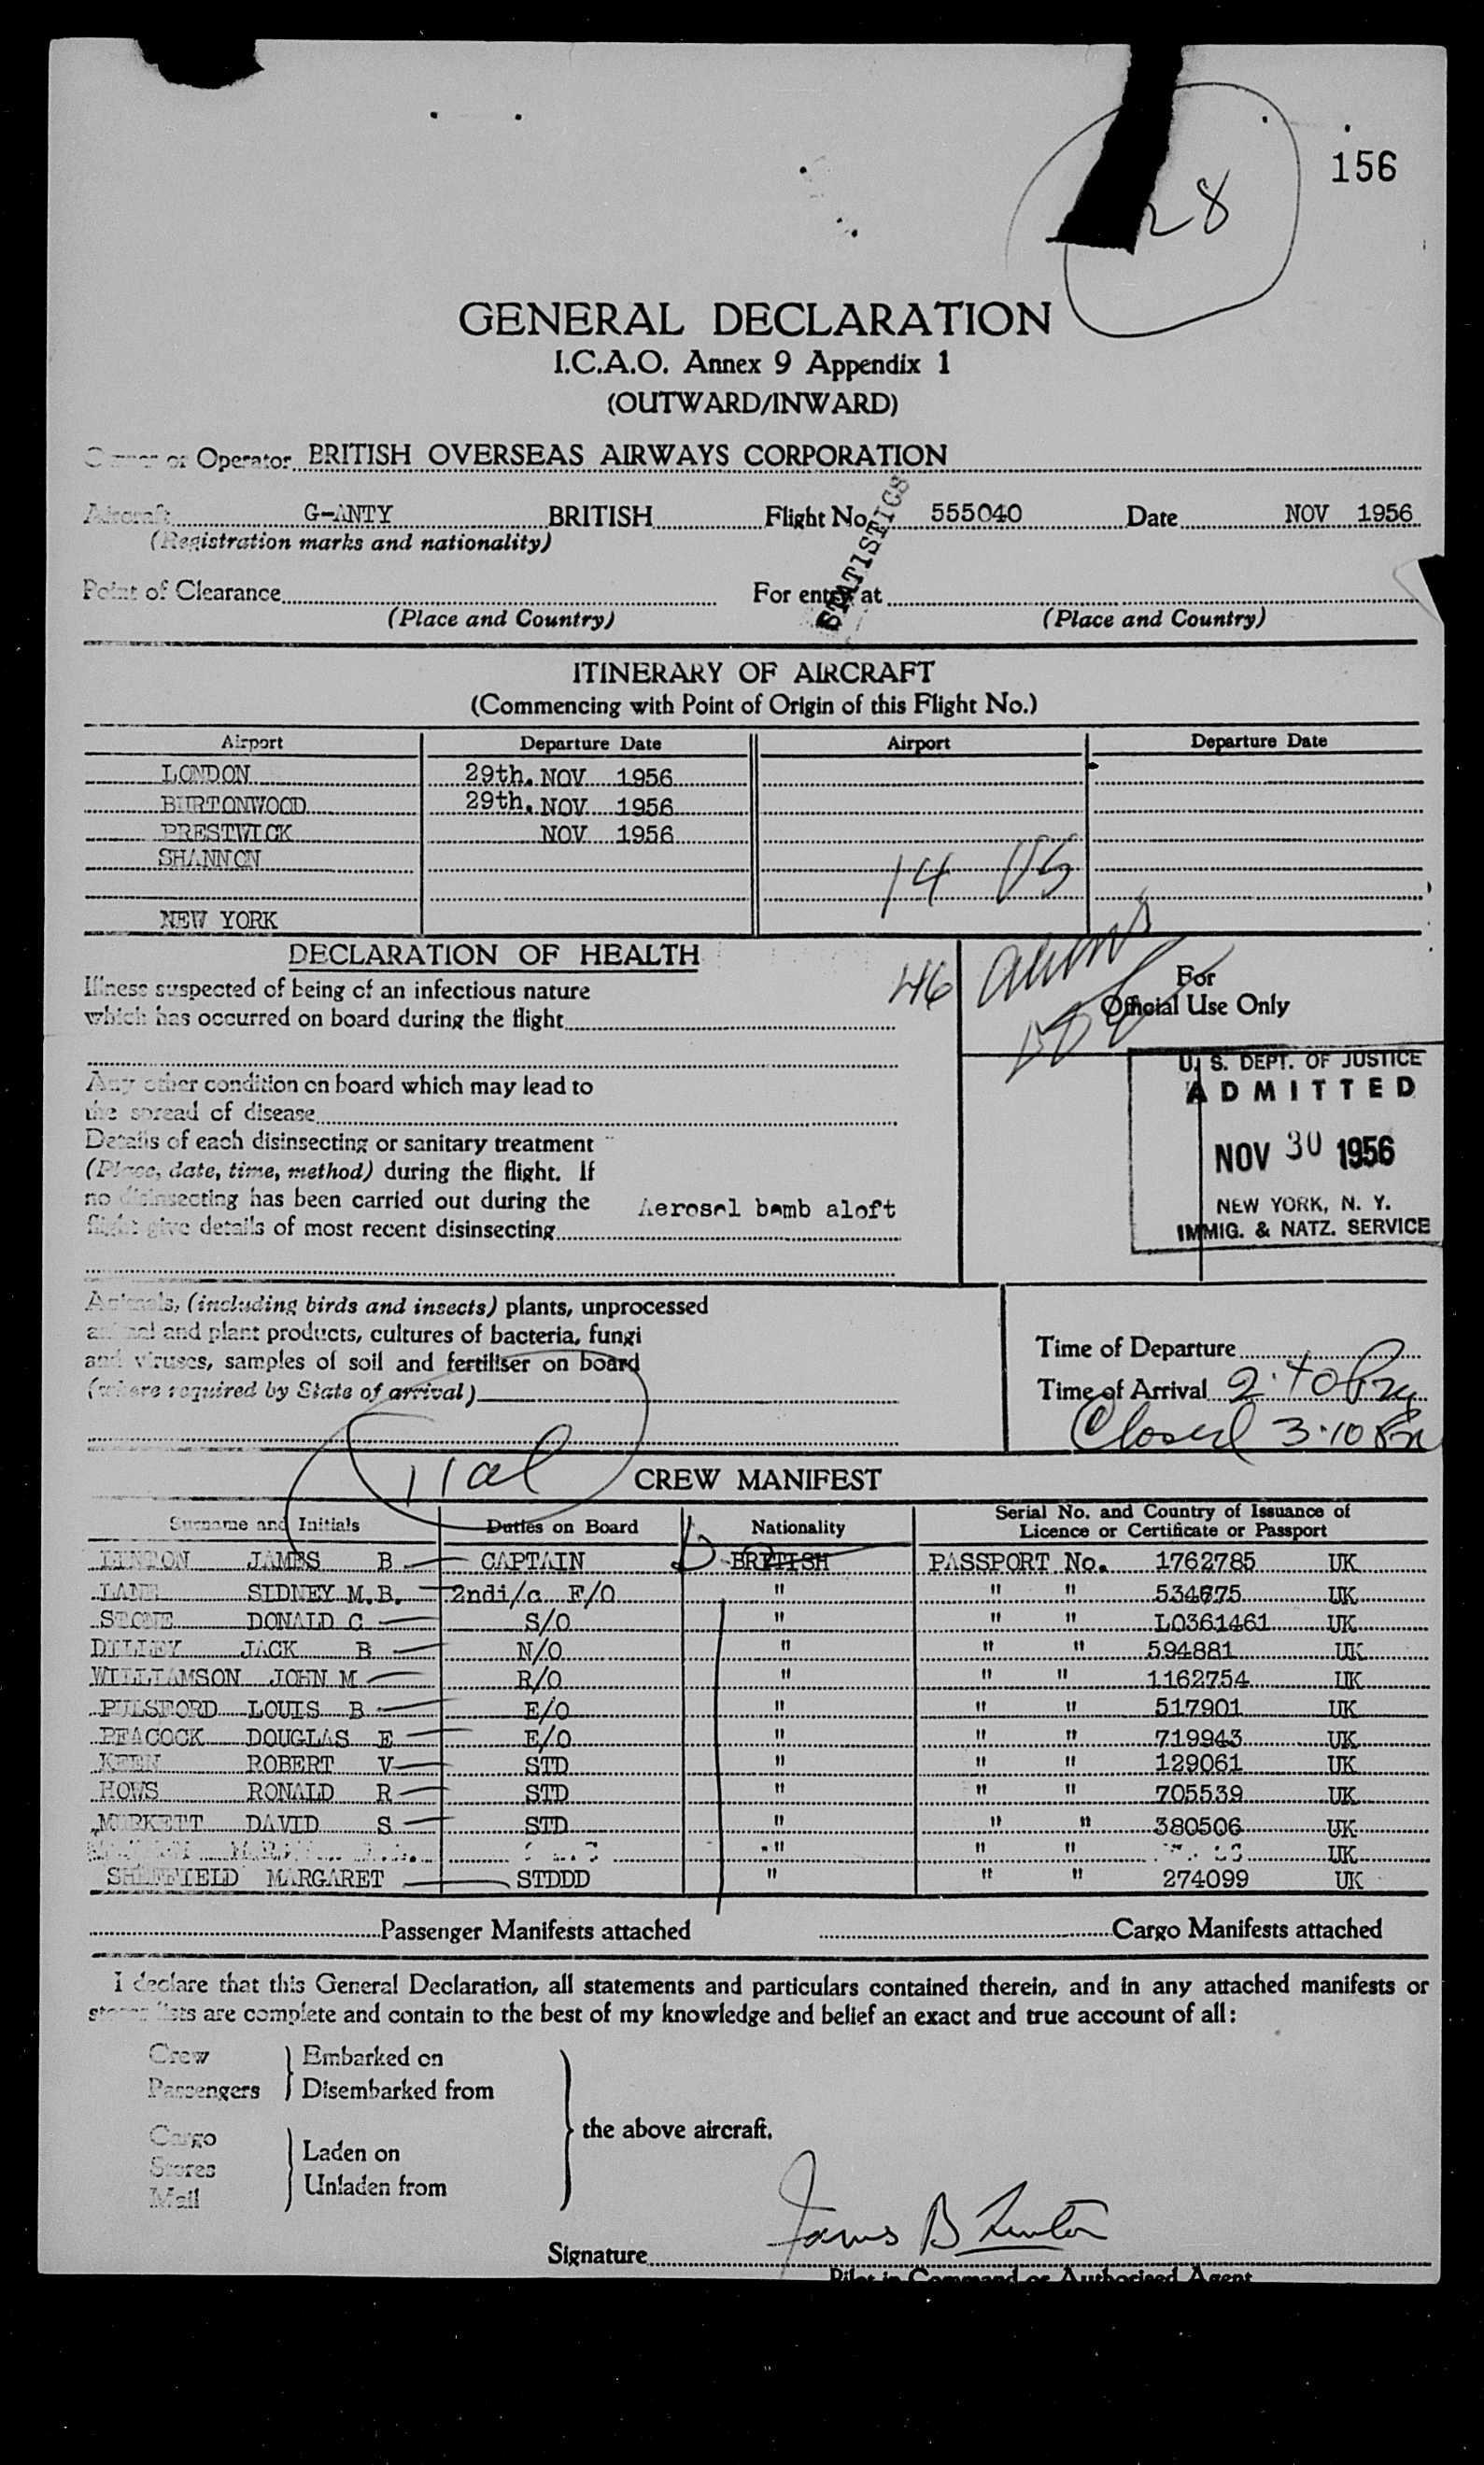 156
28
GENERAL DECLARATION
I.C.A.O. Annex 9 Appendix 1
(OUTWARD/INWARD)
Owner or Operator BRITISH OVERSEAS AIRWAYS CORPORATION
Aircraft G-ANTY BRITISH Flight No. 555040 Date NOV 1956
(Registration marks and nationality)
STATISTICS
Point of Clearance For entry at
(Place and Country) (Place and Country)
ITINERARY OF AIRCRAFT
(Commencing with Point of Origin of this Flight No.)
Airport Departure Date Airport Departure Date
LONDON 29th. NOV 1956
BURTONWOOD 29th. NOV 1956
PRESTWICK NOV 1956
SHANNON
14 US
NEW YORK
DECLARATION OF HEALTH
46 aliens
For
Official Use Only
Illness suspected of being of an infectious nature
which has occurred on board during the flight
Any other condition on board which may lead to
the spread of disease
Details of each disinsecting or sanitary treatment
(Place, date, time, method) during the flight. If
no disinsecting has been carried out during the
flight give details of most recent disinsecting
Aerosol bomb aloft
U. S. DEPT. OF JUSTICE
ADMITTED
NOV 30 1956
NEW YORK, N. Y.
IMMIG. & NATZ. SERVICE
Animals, (including birds and insects) plants, unprocessed
animal and plant products, cultures of bacteria, fungi
and viruses, samples of soil and fertiliser on board
(where required by State of arrival)
Time of Departure
Time of Arrival 2.40 Pm
Closed 3.10 Pm
CREW MANIFEST
Surname and Initials Duties on Board Nationality Serial No. and Country of Issuance of
Licence or Certificate or Passport
LINTON JAMES B CAPTAIN BRITISH PASSPORT No. 1762785 UK
LANE SIDNEY M.B. 2ndi/c F/O " " " 534675 UK
STONE DONALD C S/O " " " L0361461 UK
DILLEY JACK B N/O " " " 594881 UK
WILLIAMSON JOHN M R/O " " " 1162754 UK
PULSFORD LOUIS B E/O " " " 517901 UK
PEACOCK DOUGLAS E E/O " " " 719943 UK
KEEN ROBERT V STD " " " 129061 UK
HOWS RONALD R STD " " " 705539 UK
MURKETT DAVID S STD " " " 380506 UK
" " " UK
SHEFFIELD MARGARET STDDD " " " 274099 UK
Passenger Manifests attached Cargo Manifests attached
I declare that this General Declaration, all statements and particulars contained therein, and in any attached manifests or
stores lists are complete and contain to the best of my knowledge and belief an exact and true account of all:
Crew Embarked on
Passengers Disembarked from
the above aircraft.
Cargo Laden on
Stores
Mail Unladen from
James B Linton
Signature
Pilot in Command or Authorised Agent